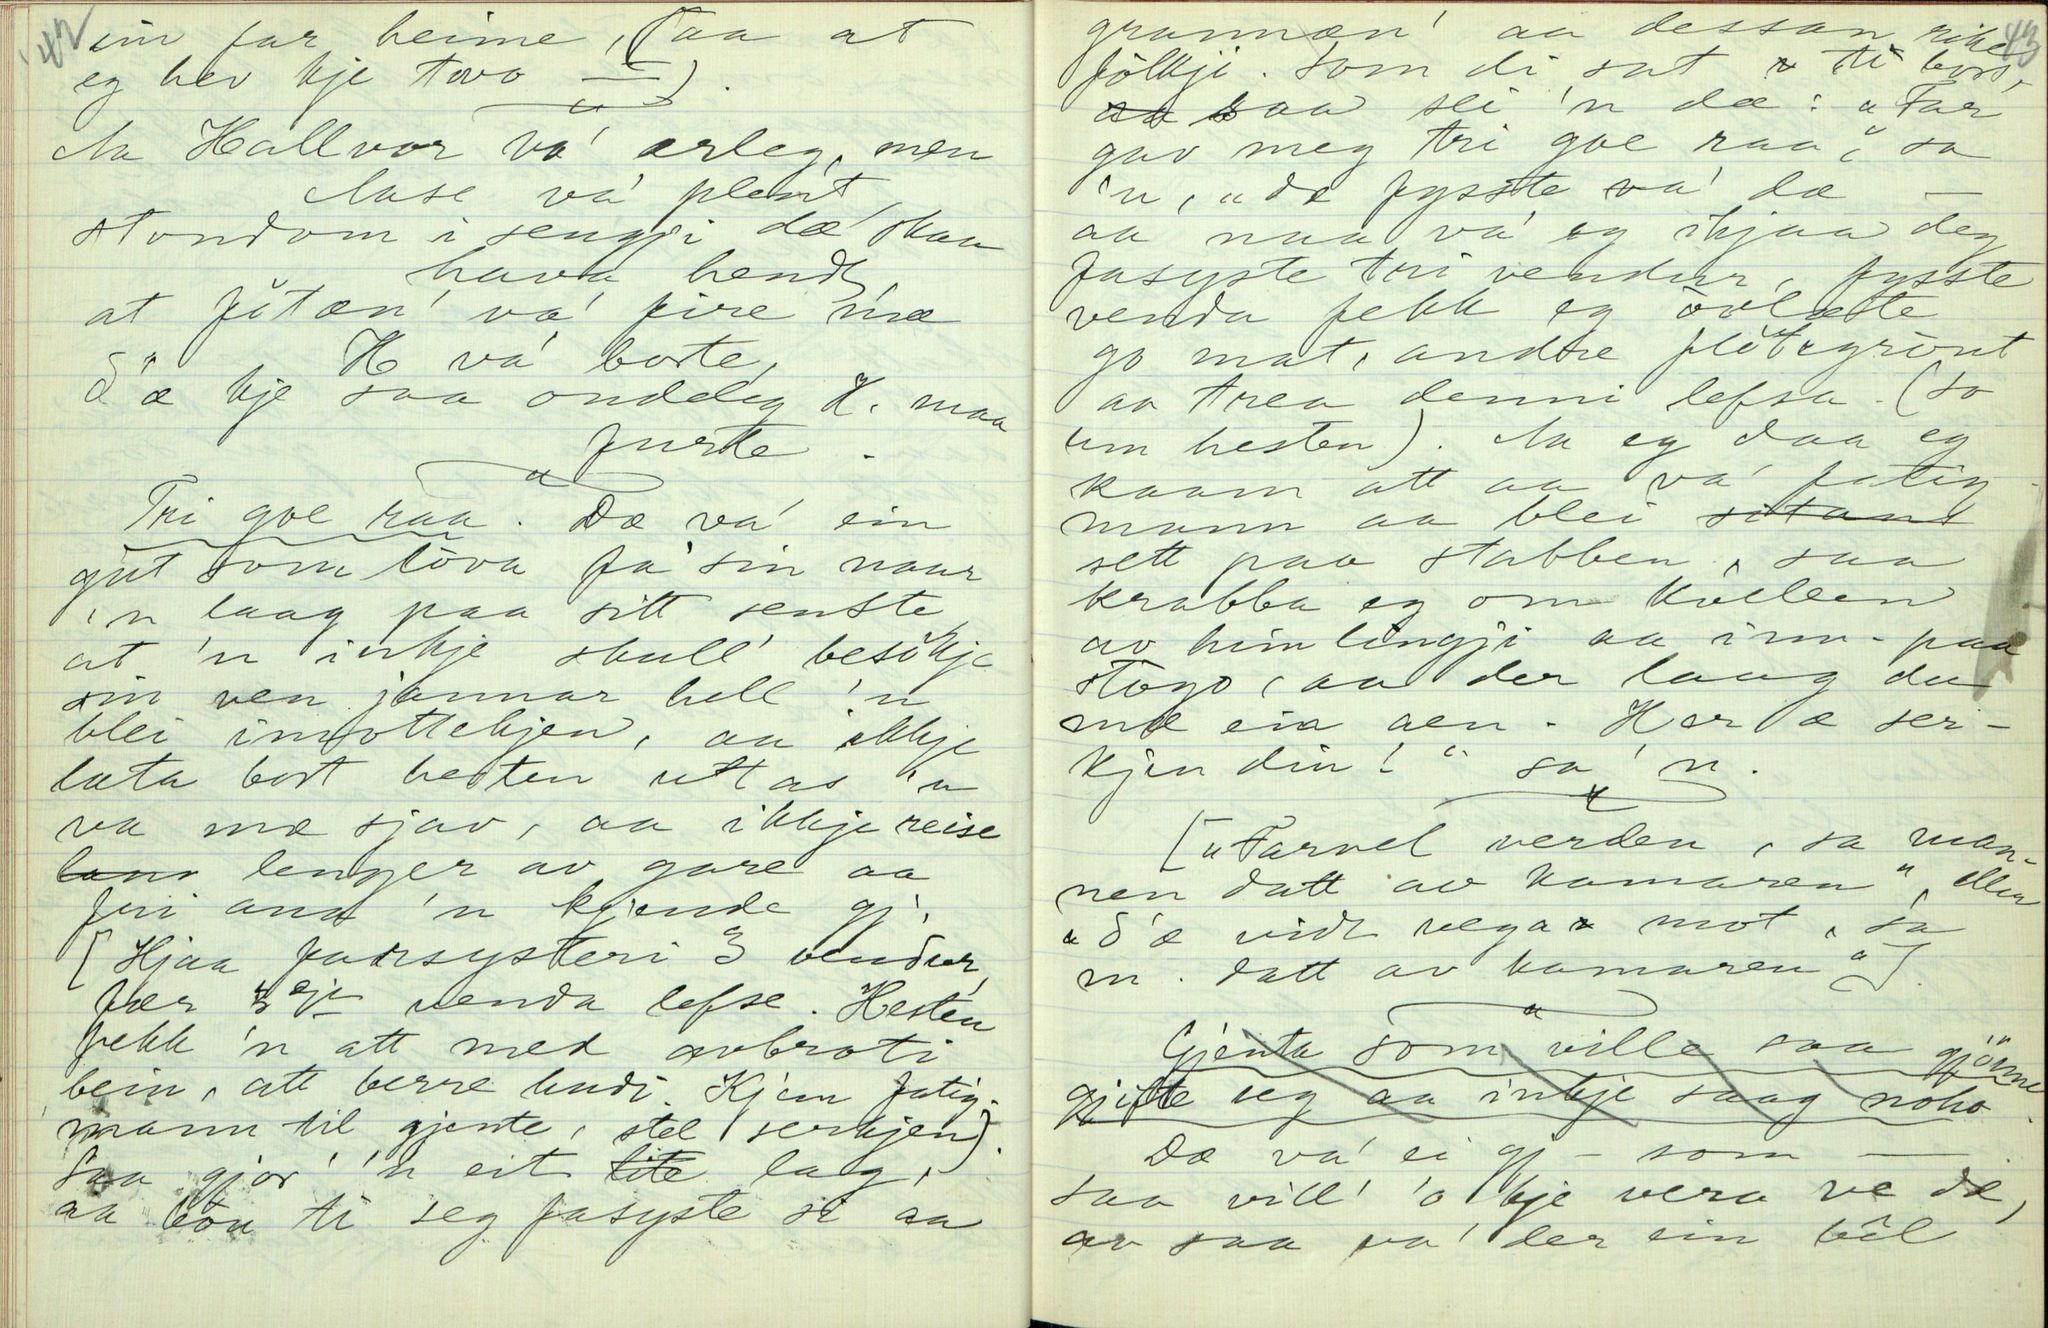 42
ein far heime, (aa at
eg hev kje tvo —).
Aa Hallvor va' ærleg, men
Aase va' plent
stondom i sengji dæ' skaa
hava hendt,
at føtæn' va' fire mæ
H va' borte,
d'æ kje saa onddeg H. maa
furte.
Tri goe raa. Dæ va' ein
gut som lova fa' sin naar
'n laag paa sitt senste
at 'n inkje skull' besøkje
sin ven jamnar hell 'n
blei imottekjen, aa ikkje
læta bort hesten uttas 'n
va mæ sjav, aa ikkje reise
lenger av gare aa
fri ana 'n kjende gj.
[Hjaa farsysteri 3 vendur,
fær 3eje venda lefse. Hesten
fekk 'n att med avbroti
bein, att berre hudi. Kjem fatig-
mann til gjente, stel serkjen).
Saa gjor' 'n eit lite lag,
aa bau ti seg fasyste si aa
43
grannæn' aa dessan rike
fôlkji. Som di sat ti bors,
saa sei 'n dæ: „Far
gav meg tri goe raa", sa
'n, „dæ fysste va' dæ —
aa naa va' eg ikjaa deg
fasyste tri vendur, fysste
venda fekk eg ovlæste
go mat, andre fløtegrøut
aa trea denni lefsa. (So
um hesten). Aa eg daa eg
kaam att aa va' fatig-
mann aa blei sitand
sett paa stabben, saa
krabba eg om kvellen
av himlingji aa inn-paa
stogo, aa der laag du
mæ ein aen. Her æ ser-
kjen din!" sa 'n.
[„Farvel verden, sa man-
nen datt av hamaren", ellen
„d'æ vidt vegar mot, sa
m. datt av hamaren"]
Gjenta som ville saa gjönne
gjifte seg aa inkje saag noko.
Dæ va' ei gj – som —
saa vill' 'o kje vera ve dæ,
av saa va' der ein bêl